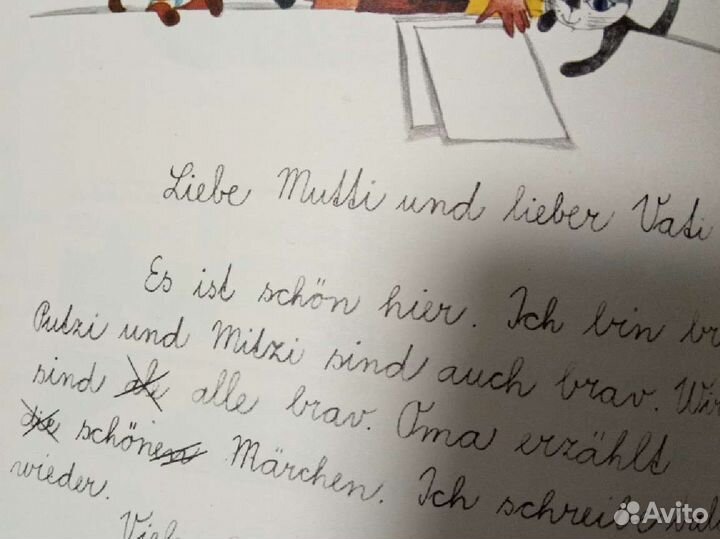 Liebe Mutti und lieber Vati
Es ist schön hier. Ich bin
Putzi und Mitzi sind auch brav. Wir
sind alle brav. Oma erzählt
schöne Märchen. Ich schreibe
wieder.
Avito